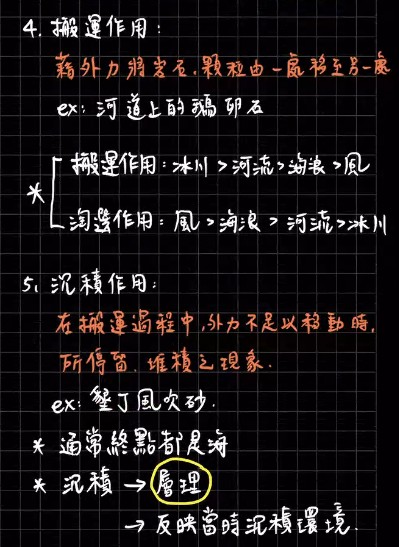 4. 搬運作用:
藉外力將岩石.顆粒由一處移至另一處
ex: 河道上的鵝卵石
* 搬運作用: 冰川 > 河流 > 海浪 > 風
淘選作用: 風 > 海浪 > 河流 > 冰川
5. 沉積作用:
在搬運過程中,外力不足以移動時,
所停留.堆積之現象.
ex: 墾丁風吹砂.
* 通常終點都是海
* 沉積 → 層理
→ 反映當時沉積環境.